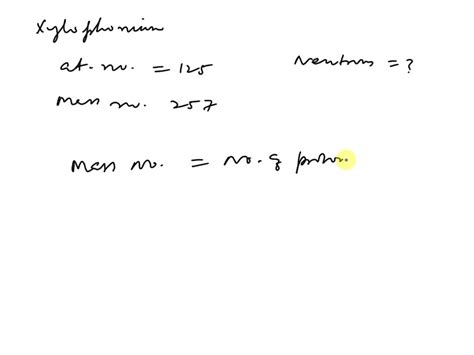 Xylophonium
at. no. = 125
Neutrons = ?
Mass no. 257
Mass no. = no. of proton.